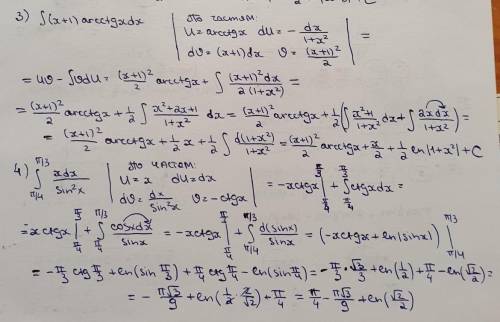 3) ∫(x+1)arcctgxdx | это частям: u=arcctgx du=-dx/(1+x²) dv=(x+1)dx v=(x+1)²/2 | =
=uv-∫vdu=(x+1)²/2 arcctgx+∫(x+1)²dx/(2(1+x²))=
=(x+1)²/2 arcctgx+1/2∫(x²+2x+1)/(1+x²) dx=(x+1)²/2 arcctgx+1/2(∫(x²+1)/(1+x²) dx+∫2xdx/(1+x²))=
=(x+1)²/2 arcctgx+1/2 x+1/2∫d(1+x²)/(1+x²)=(x+1)²/2 arcctgx+x/2+1/2 ln|1+x²|+C
4) ∫_{π/4}^{π/3} xdx/sin²x | это частям: u=x du=dx dv=dx/sin²x v=-ctgx | =-xctgx|_{π/4}^{π/3}+∫_{π/4}^{π/3}ctgxdx=
=-xctgx|_{π/4}^{π/3}+∫_{π/4}^{π/3}cosxdx/sinx=-xctgx|_{π/4}^{π/3}+∫_{π/4}^{π/3}d(sinx)/sinx=(-xctgx+ln|sinx|)|_{π/4}^{π/3}
=-π/3 ctgπ/3+ln(sinπ/3)+π/4 ctgπ/4-ln(sinπ/4)=-π/3·√3/3+ln(1/2)+π/4-ln(√2/2)=
=-π√3/9+ln(1/2·2/√2)+π/4=π/4-π√3/9+ln(√2/2)